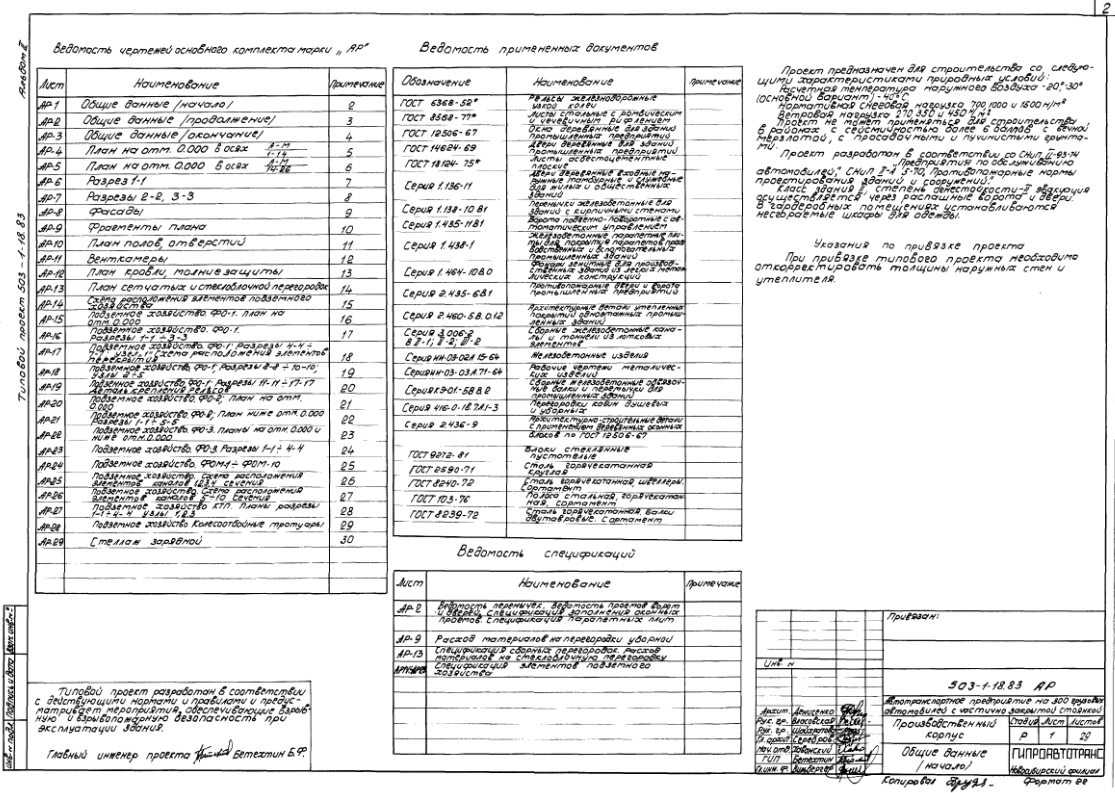 2
Альбом II
Типовой проект 503-1-18.83
Ведомость чертежей основного комплекта марки „АР"
Лист Наименование Примечание
АР-1 Общие данные /начало/ 2
АР-2 Общие данные /продолжение/ 3
АР-3 Общие данные /окончание/ 4
АР-4 План на отм. 0.000 в осях А-М 1-14 5
АР-5 План на отм. 0.000 в осях А-М 14-26 6
АР-6 Разрез 1-1 7
АР-7 Разрезы 2-2, 3-3 8
АР-8 Фасады 9
АР-9 Фрагменты плана 10
АР-10 План полов, отверстий 11
АР-11 Венткамеры 12
АР-12 План кровли, молниезащиты 13
АР-13 План сетчатых и стеклоблочной перегородок 14
АР-14 Схема расположения элементов подземного хозяйства 15
АР-15 Подземное хозяйство. ФО-1. План на отм. 0.000 16
АР-16 Подземное хозяйство. ФО-1. Разрезы 1-1 ÷ 3-3 17
АР-17 Подземное хозяйство. ФО-1; Разрезы 4-4 ÷ 7-7. Узел „1" Схема расположения элементов перекрытия 18
АР-18 Подземное хозяйство. ФО-1; Разрезы 8-8 ÷ 10-10; Узлы 2÷5 19
АР-19 Подземное хозяйство. ФО-1; Разрезы 11-11 ÷ 17-17 Деталь крепления рельсов 20
АР-20 Подземное хозяйство. ФО-2; План на отм. 0.000 21
АР-21 Подземное хозяйство. ФО-2; План ниже отм. 0.000 Разрезы 1-1 ÷ 5-5 22
АР-22 Подземное хозяйство. ФО-3. Планы на отм. 0.000 и ниже отм. 0.000 23
АР-23 Подземное хозяйство. ФО-3. Разрезы 1-1 ÷ 4-4 24
АР-24 Подземное хозяйство. ФОМ-1 ÷ ФОМ-10 25
АР-25 Подземное хозяйство. Схема расположения элементов каналов 1,2,3,4 сечения 26
АР-26 Подземное хозяйство. Схема расположения элементов каналов 5-10 Сечения 27
АР-27 Подземное хозяйство КТП. Планы разрезы 1-1 ÷ 4-4 Узлы 1,2,3 28
АР-28 Подземное хозяйство Колесоотбойные тротуары 29
АР-29 Стеллаж зарядной 30
Ведомость примененных документов
Обозначение Наименование Примечание
ГОСТ 6368-52* Рельсы железнодорожные узкой колеи
ГОСТ 8568-77* Листы стальные с ромбическим и чечевичным рифлением
ГОСТ 12506-67 Окна деревянные для зданий промышленных предприятий
ГОСТ 14624-69 Двери деревянные для зданий промышленных предприятий
ГОСТ 18124-75* Листы асбестоцементные плоские
Серия 1.136-11 Двери деревянные входные наружные тамбурные и служебные для жилых и общественных зданий
Серия 1.138-10 В1 Перемычки железобетонные для зданий с кирпичными стенами
Серия 1.435-11В1 Ворота подъемно-поворотные с автоматическим управлением
Серия 1.438-1 Железобетонные парапетные плиты для покрытия парапетов производственных и вспомогательных промышленных зданий
Серия 1.464-10В.0 Фонари зенитные для производственных зданий из легких металлических конструкций
Серия 2.435-6В.1 Противопожарные двери и ворота промышленных предприятий
Серия 2.460-5В.0.12 Архитектурные детали утепленных покрытий одноэтажных промышленных зданий
Серия 3.006-2 В II-1; II-2; III-2 Сборные железобетонные каналы и тоннели из лотковых элементов
Серия ИИ-03-02Л 15-64 Железобетонные изделия
Серия ИИ-03-03Л.71-64 Рабочие чертежи металлических изделий
Серия КЭ-01-58 В.2 Сборные железобетонные обвязочные балки и перемычки для промышленных зданий
Серия 416-0-18.7Л1-3 Перегородки кабин душевых и уборных
Серия 2.436-9 Архитектурно-строительные детали с применением деревянных оконных блоков по ГОСТ 12506-67
ГОСТ 9272-81 Блоки стеклянные пустотелые
ГОСТ 2590-71 Сталь горячекатанная круглая
ГОСТ 8240-72 Сталь горячекатанная, швеллеры. Сортамент
ГОСТ 103-76 Полоса стальная, горячекатанная, сортамент
ГОСТ 8239-72 Сталь горячекатанная. Балки двутавровые. Сортамент
Ведомость спецификаций
Лист Наименование Примечание
АР-2 Ведомость перемычек. Ведомость проемов ворот и дверей. Спецификация заполнения оконных проемов. Спецификация парапетных плит
АР-9 Расход материалов на перегородки уборной
АР-13 Спецификация сборных перегородок. расход материалов на стеклоблочную перегородку
Спецификация элементов подземного хозяйства
Проект предназначен для строительства со следую-
щими характеристиками природных условий:
Расчетная температура наружного воздуха -20°, -30°
(основной вариант), -40°С
Нормативная снеговая нагрузка 700, 1000 и 1500 Н/м²
Ветровая нагрузка 270, 350 и 450 Н/м²
Проект не может применяться для строительства
в районах с сейсмичностью более 6 баллов, с вечной
мерзлотой, с просадочными и пучинистыми грунта-
ми.
Проект разработан в соответствии со СНиП II-93-74
„Предприятия по обслуживанию
автомобилей," СНиП II-А 5-70, Противопожарные нормы
проектирования зданий и сооружений."
Класс здания II, степень огнестойкости-II эвакуация
осуществляется через распашные ворота и двери.
В гардеробных помещениях устанавливаются
несгораемые шкафы для одежды.
Указания по привязке проекта
При привязке типового проекта необходимо
откорректировать толщины наружных стен и
утеплителя.
Типовой проект разработан в соответствии
с действующими нормами и правилами и предус-
матривает мероприятия, обеспечивающие взрыв-
ную и взрывопожарную безопасность при
эксплуатации здания.
Главный инженер проекта Бетехтин Б.Ф.
Инв. № подл. Подпись и дата Взам. инв. №
Привязан:
Инв. №
503-1-18.83 АР
Автотранспортное предприятие на 300 грузовых
автомобилей с частично закрытой стоянкой
Производственный корпус
Стадия Лист Листов
Р 1 29
Общие данные /начало/
ГИПРОАВТОТРАНС
Новосибирский филиал
Архит. Денисенко
Рук. гр. Власовская
Рук. гр.
Гл. архит. Серебров
Нач. отд.
ГИП Бетехтин
Копировал
Формат 22